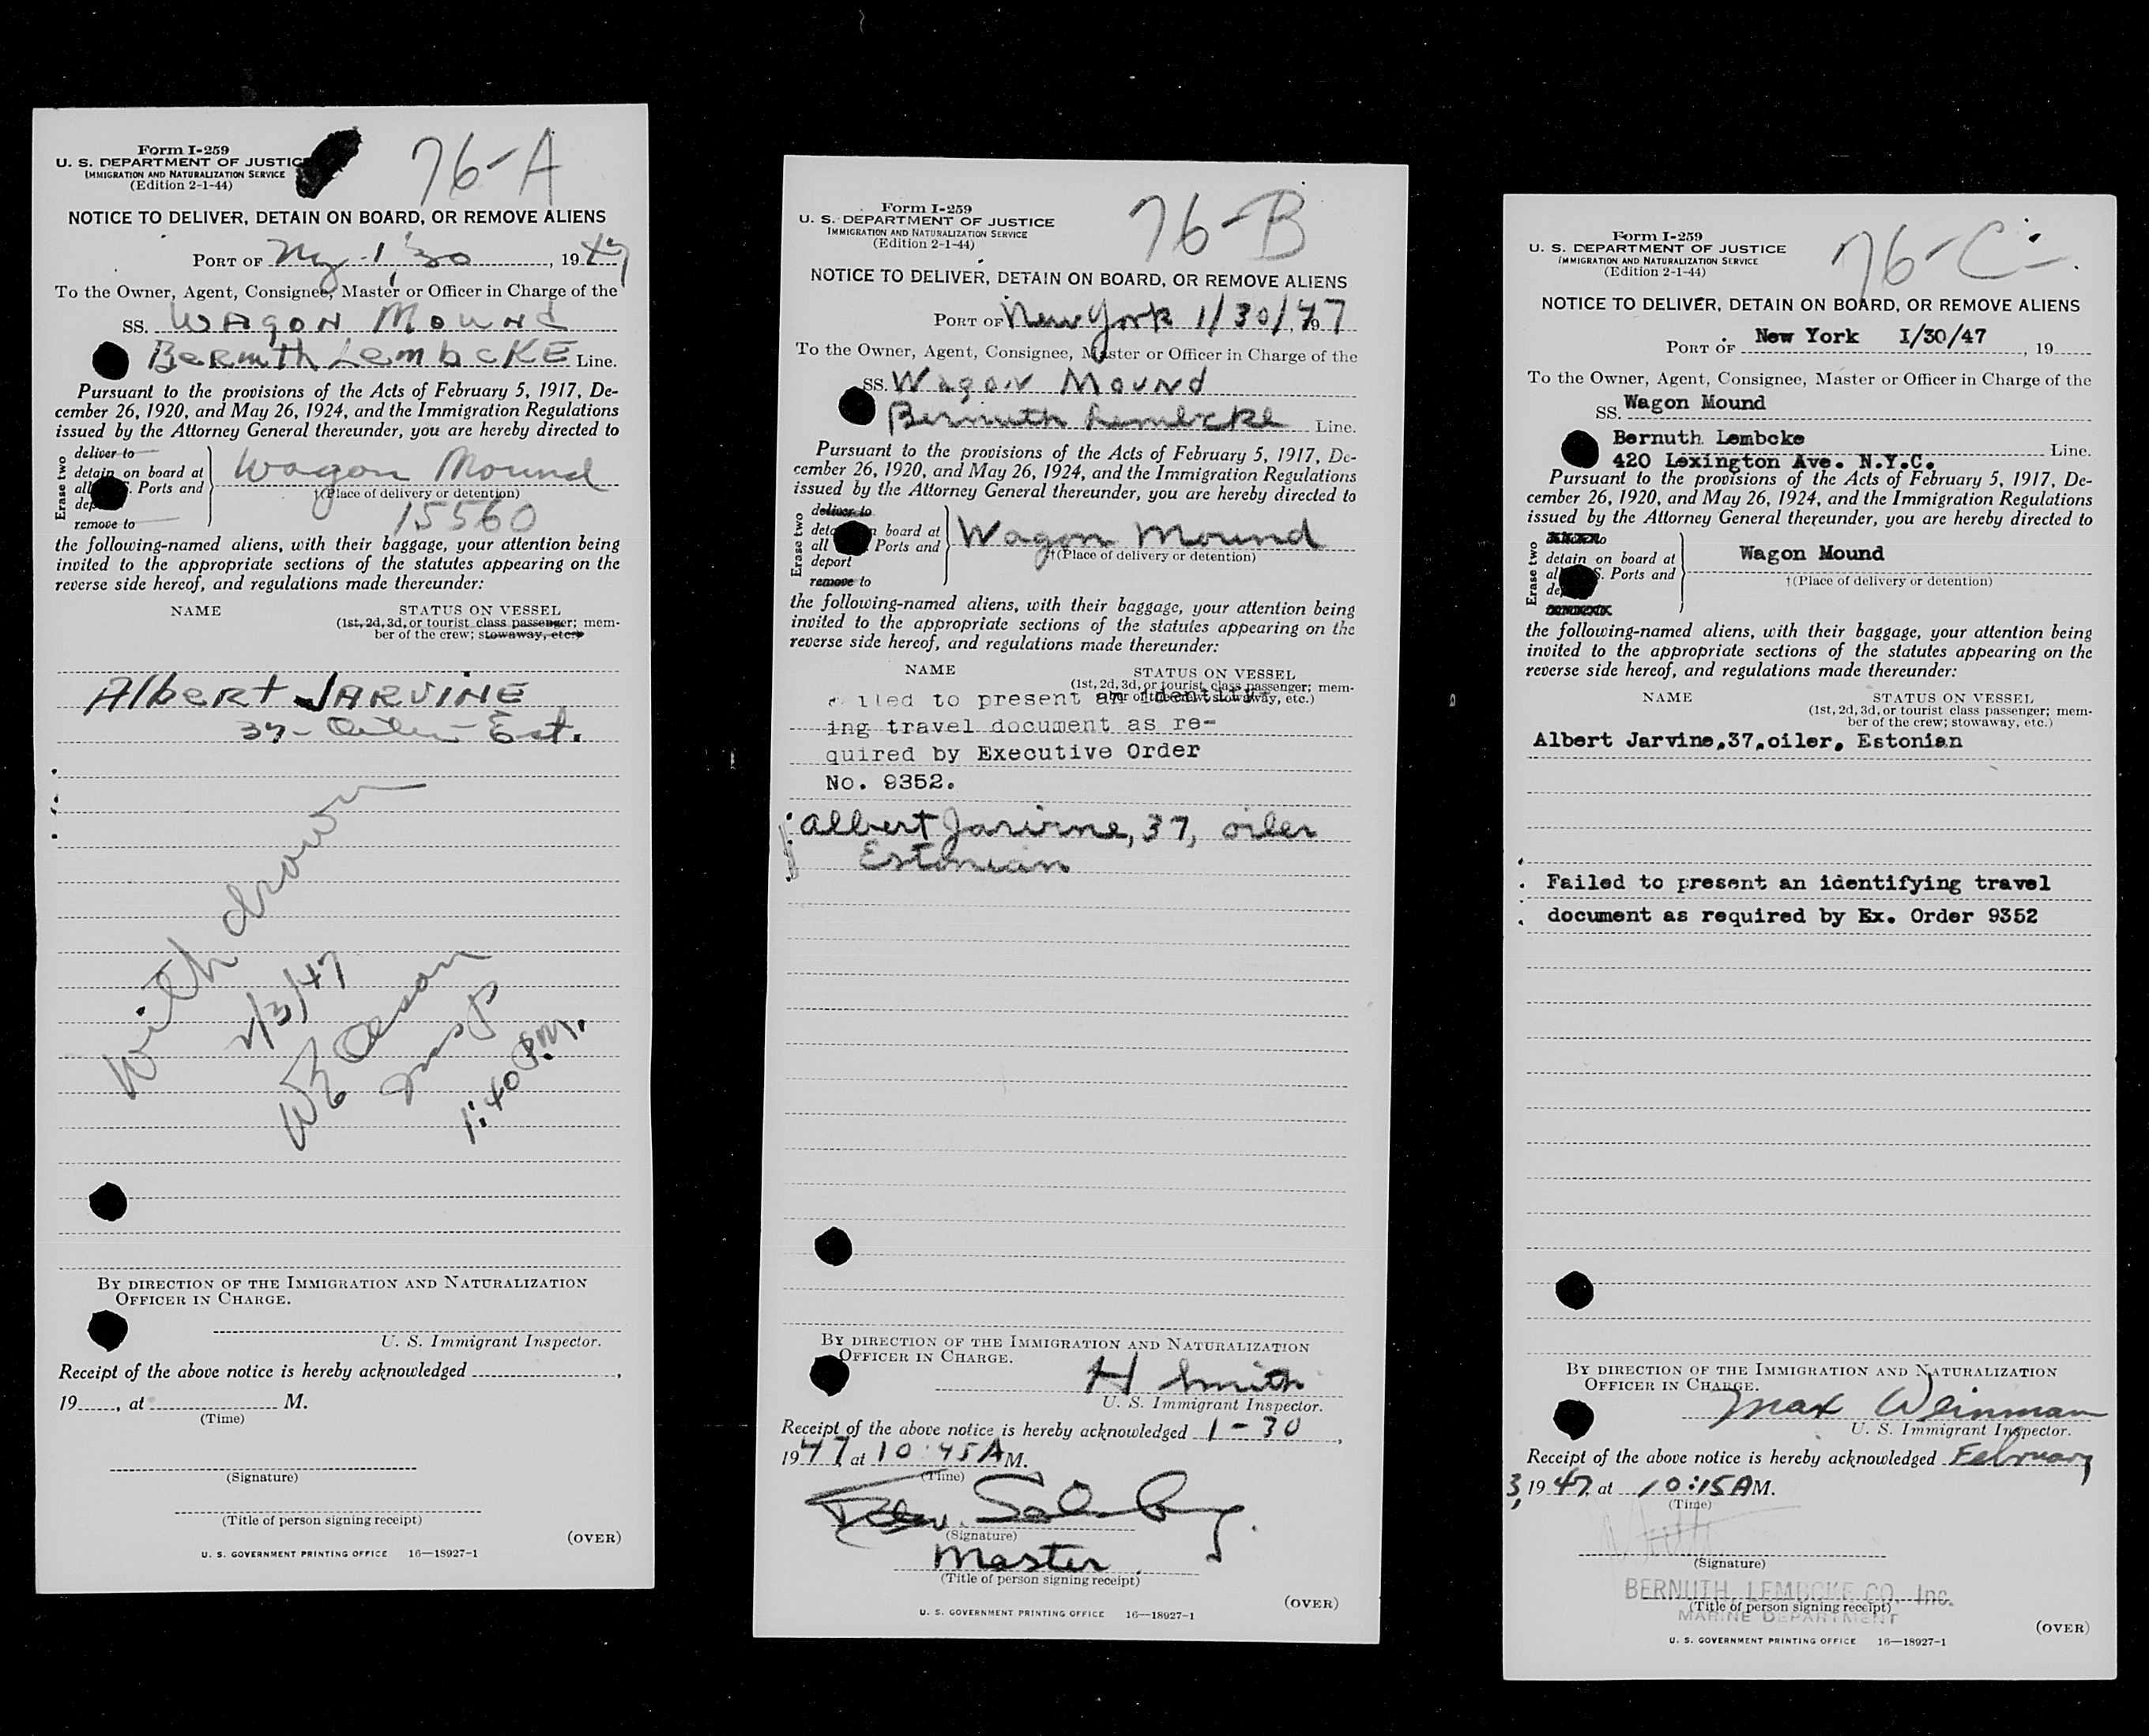 Form I-259
U. S. DEPARTMENT OF JUSTICE
IMMIGRATION AND NATURALIZATION SERVICE
(Edition 2-1-44)
76-A
NOTICE TO DELIVER, DETAIN ON BOARD, OR REMOVE ALIENS
PORT OF NY 1/30, 1947
To the Owner, Agent, Consignee, Master or Officer in Charge of the
SS. WAgON MOUND
BeRmTh LembcKE Line.
Pursuant to the provisions of the Acts of February 5, 1917, De-
cember 26, 1920, and May 26, 1924, and the Immigration Regulations
issued by the Attorney General thereunder, you are hereby directed to
Erase two
deliver to
detain on board at
all S. Ports and
dep
remove to
Wagon Mound
†(Place of delivery or detention)
15560
the following-named aliens, with their baggage, your attention being
invited to the appropriate sections of the statutes appearing on the
reverse side hereof, and regulations made thereunder:
NAME
STATUS ON VESSEL
(1st, 2d, 3d, or tourist class passenger; mem-
ber of the crew; stowaway, etc.)
AlbeRt JARVINE
37- Oiler - Est.
Withdrawn
2/3/47
Olson
Insp
1:40 P.M.
BY DIRECTION OF THE IMMIGRATION AND NATURALIZATION
OFFICER IN CHARGE.
U. S. Immigrant Inspector.
Receipt of the above notice is hereby acknowledged ,
19 , at M.
(Time)
(Signature)
(Title of person signing receipt)
(OVER)
U. S. GOVERNMENT PRINTING OFFICE 16—18927-1
Form I-259
U. S. DEPARTMENT OF JUSTICE
IMMIGRATION AND NATURALIZATION SERVICE
(Edition 2-1-44)
76-B
NOTICE TO DELIVER, DETAIN ON BOARD, OR REMOVE ALIENS
PORT OF New York 1/30/, 1947
To the Owner, Agent, Consignee, Master or Officer in Charge of the
SS. Wagon Mound
Bernuth Lembcke Line.
Pursuant to the provisions of the Acts of February 5, 1917, De-
cember 26, 1920, and May 26, 1924, and the Immigration Regulations
issued by the Attorney General thereunder, you are hereby directed to
Erase two
deliver to
deta board at
all Ports and
deport
remove to
Wagon Mound
†(Place of delivery or detention)
the following-named aliens, with their baggage, your attention being
invited to the appropriate sections of the statutes appearing on the
reverse side hereof, and regulations made thereunder:
NAME
STATUS ON VESSEL
(1st, 2d, 3d, or tourist class passenger; mem-
ber of the crew; stowaway, etc.)
iled to present an identify-
ing travel document as re-
quired by Executive Order
No. 9352.
Albert Jarvine, 37, oiler
Estonian
BY DIRECTION OF THE IMMIGRATION AND NATURALIZATION
OFFICER IN CHARGE.
H Smith
U. S. Immigrant Inspector.
Receipt of the above notice is hereby acknowledged 1-30,
1947, at 10:45 A M.
(Time)
(Signature)
Master
(Title of person signing receipt)
(OVER)
U. S. GOVERNMENT PRINTING OFFICE 16—18927-1
Form I-259
U. S. DEPARTMENT OF JUSTICE
IMMIGRATION AND NATURALIZATION SERVICE
(Edition 2-1-44)
76-C
NOTICE TO DELIVER, DETAIN ON BOARD, OR REMOVE ALIENS
PORT OF New York I/30/47, 19
To the Owner, Agent, Consignee, Master or Officer in Charge of the
SS. Wagon Mound
Bernuth Lembcke Line.
420 Lexington Ave. N.Y.C.
Pursuant to the provisions of the Acts of February 5, 1917, De-
cember 26, 1920, and May 26, 1924, and the Immigration Regulations
issued by the Attorney General thereunder, you are hereby directed to
Erase two
detain on board at
al S. Ports and
de
Wagon Mound
†(Place of delivery or detention)
the following-named aliens, with their baggage, your attention being
invited to the appropriate sections of the statutes appearing on the
reverse side hereof, and regulations made thereunder:
NAME
STATUS ON VESSEL
(1st, 2d, 3d, or tourist class passenger; mem-
ber of the crew; stowaway, etc.)
Albert Jarvine,37,oiler, Estonian
Failed to present an identifying travel
document as required by Ex. Order 9352
BY DIRECTION OF THE IMMIGRATION AND NATURALIZATION
OFFICER IN CHARGE.
Max Weinman
U. S. Immigrant Inspector.
Receipt of the above notice is hereby acknowledged February
3, 1947, at 10:15 A M.
(Time)
(Signature)
BERNUTH, LEMBCKE CO. Inc.
(Title of person signing receipt)
MARINE DEPARTMENT
(OVER)
U. S. GOVERNMENT PRINTING OFFICE 16—18927-1